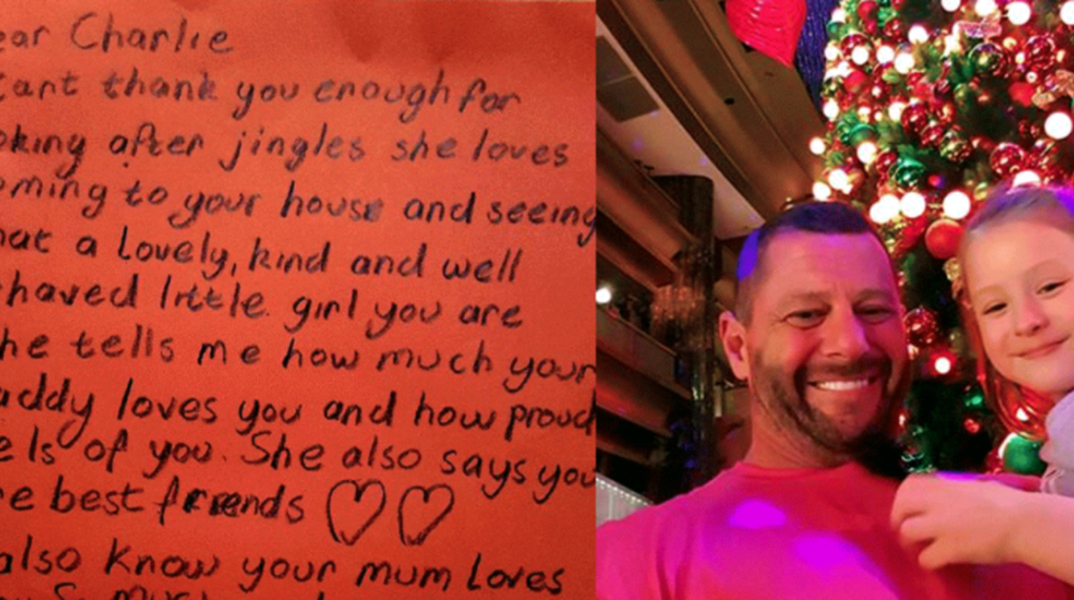 ear Charlie
cant thank you enough for
oking after jingles she loves
oming to your house and seeing
hat a lovely, kind and well
haved little girl you are
he tells me how much your
addy loves you and how proud
e is of you. She also says you
re best friends
also know your mum loves